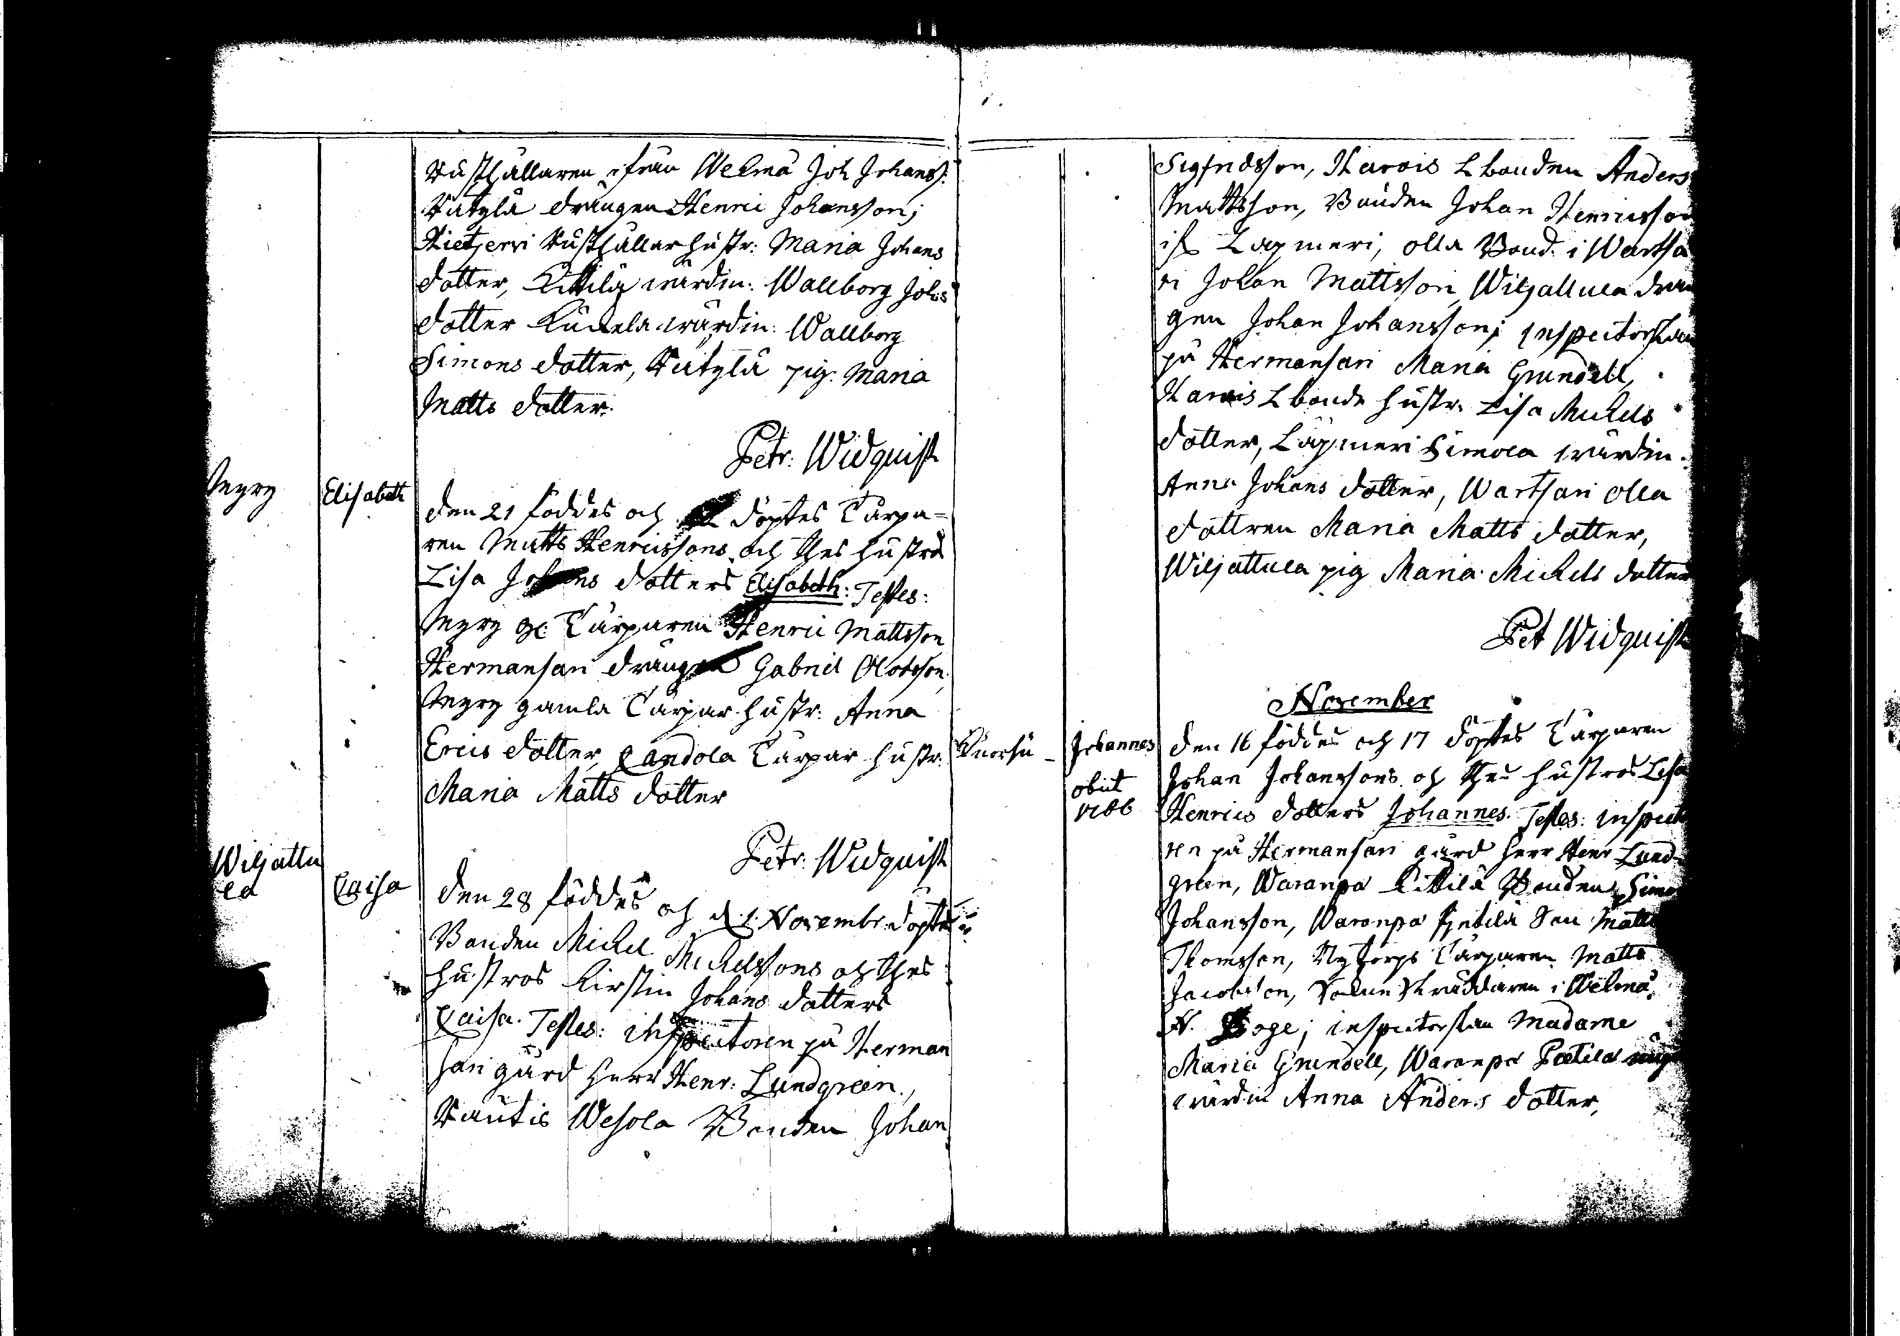 Rusthållaren ifrån Welmå Joh Johanss:
Rätylä drängen Henric Johansson;
Hietjervi Rusthållar hustr: Maria Johans
dotter, Kittilä wärdin: Wallborg Johs
dotter Kuckela wärdin: Wallborg
Simons dotter, Rätylä pig: Maria
Matts dotter.
Petr: Widquist
Myry
Elisabeth
den 21 föddes och döptes Tårpa-
ren Matts Henricssons och thes hustru
Lisa Johans dotters Elisabeth: Testes:
Myry Tårparen Henric Mattsson
Hermansari drängen Gabriel Olofsson,
Myry gamla Tårpar hustr: Anna
Erics dotter, Candola Tårpar hustr:
Maria Matts dotter
Petr: Widquist
Wiljattu
la
Caisa
den 28 föddes och d. 1. Novembr. döptes
Bonden Michel Michelssons och thes
hustros Kirstin Johans dotters
Caisa. Testes: inspectoren på Herman
sari gård Herr Henr: Lundgreen,
Rautis Wesola Bonden Johan
Sigfridsson, Harvis L bonden Anders
Mattsson, Bonden Johan Henricsson
Lapmeri, Olla Bond. i Wartsa
ri Johan Mattsson, Wiljattula drän
gen Johan Johansson; inspectorskan
på Hermansari Maria Grundell,
Harvis L bonde hustr. Lisa Michels
dotter, Lapmeri Simola wärdin:
Anna Johans dotter, Wartsari Olla
dottren Maria Matts dotter,
Wiljattula pig Maria Michels dotter
Pet Widquist
November
Johannes
obiit
1766
den 16 föddes och 17 döptes Tårparen
Johan Johanssons och thes hustros Lisa
Henrics dotters Johannes. Testes: inspecto
ren på Hermansari gård Herr Henr Lund-
green, Waranpä Kittilä Bonden Simon
Johansson, Waranpä Pentilä Son Matts
Thomsson, Nytorps Tårparen Matts
Jacobsson, Sockne Skräddaren i Welmå
N. Boge; inspectorskan Madame
Maria Grundell, Waranpä
wärdin Anna Anders dotter,